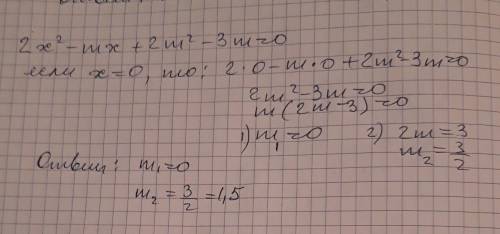 2x² - mx + 2m² - 3m = 0
если x = 0, то: 2·0 - m·0 + 2m² - 3m = 0
2m² - 3m = 0
m(2m - 3) = 0
1) m₁ = 0 2) 2m = 3
m₂ = 3/2
Ответ: m₁ = 0
m₂ = 3/2 = 1,5